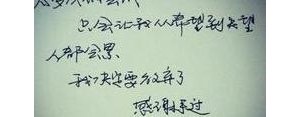 只会让我从希望到失望
人都会累
我决定要放弃了
感谢来过